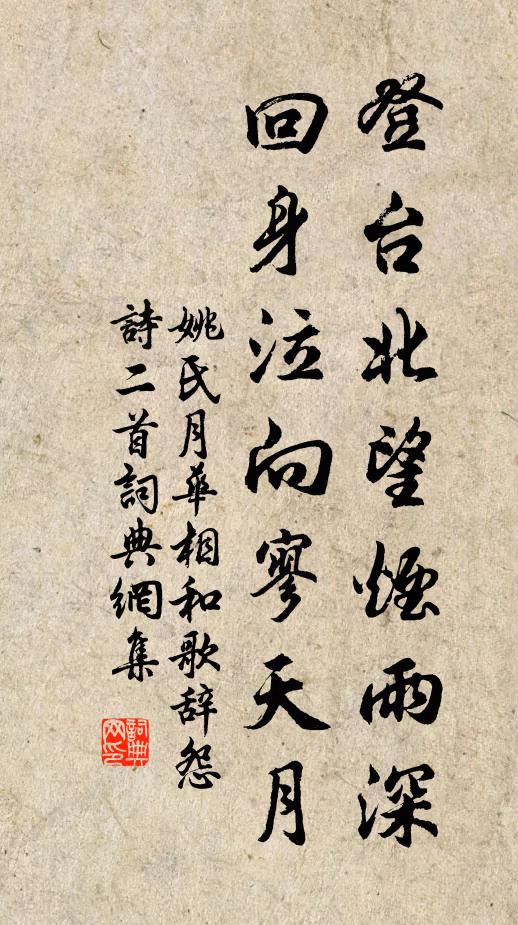 登台北望煙雨深
回身泣向寥天月
姚氏月華相和歌辞怨
詩二首詞典網集
詞典
网印